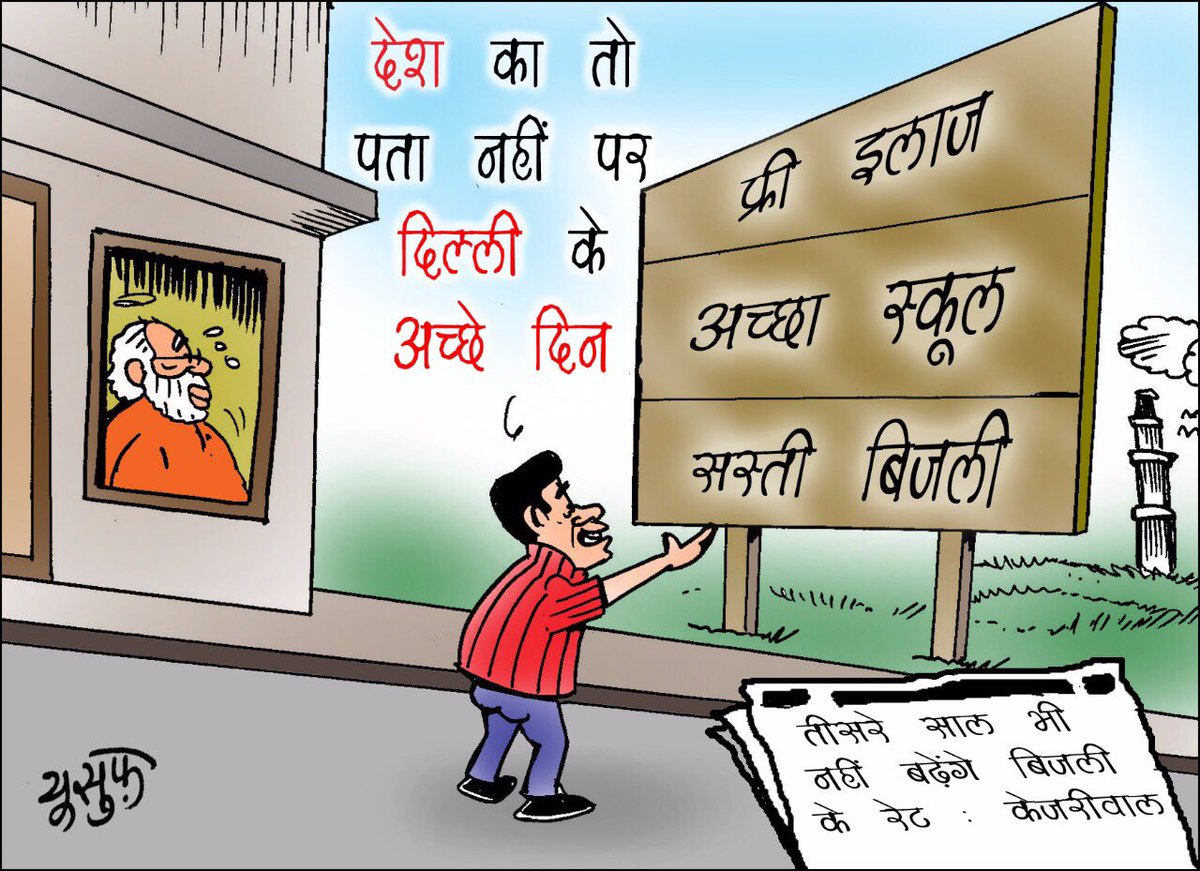 देश का तो
पता नहीं पर
दिल्ली के
अच्छे दिन
फ्री इलाज
अच्छा स्कूल
सस्ती बिजली
तीसरे साल भी
नहीं बढ़ेंगे बिजली
के रेट : केजरीवाल
यूसुफ़